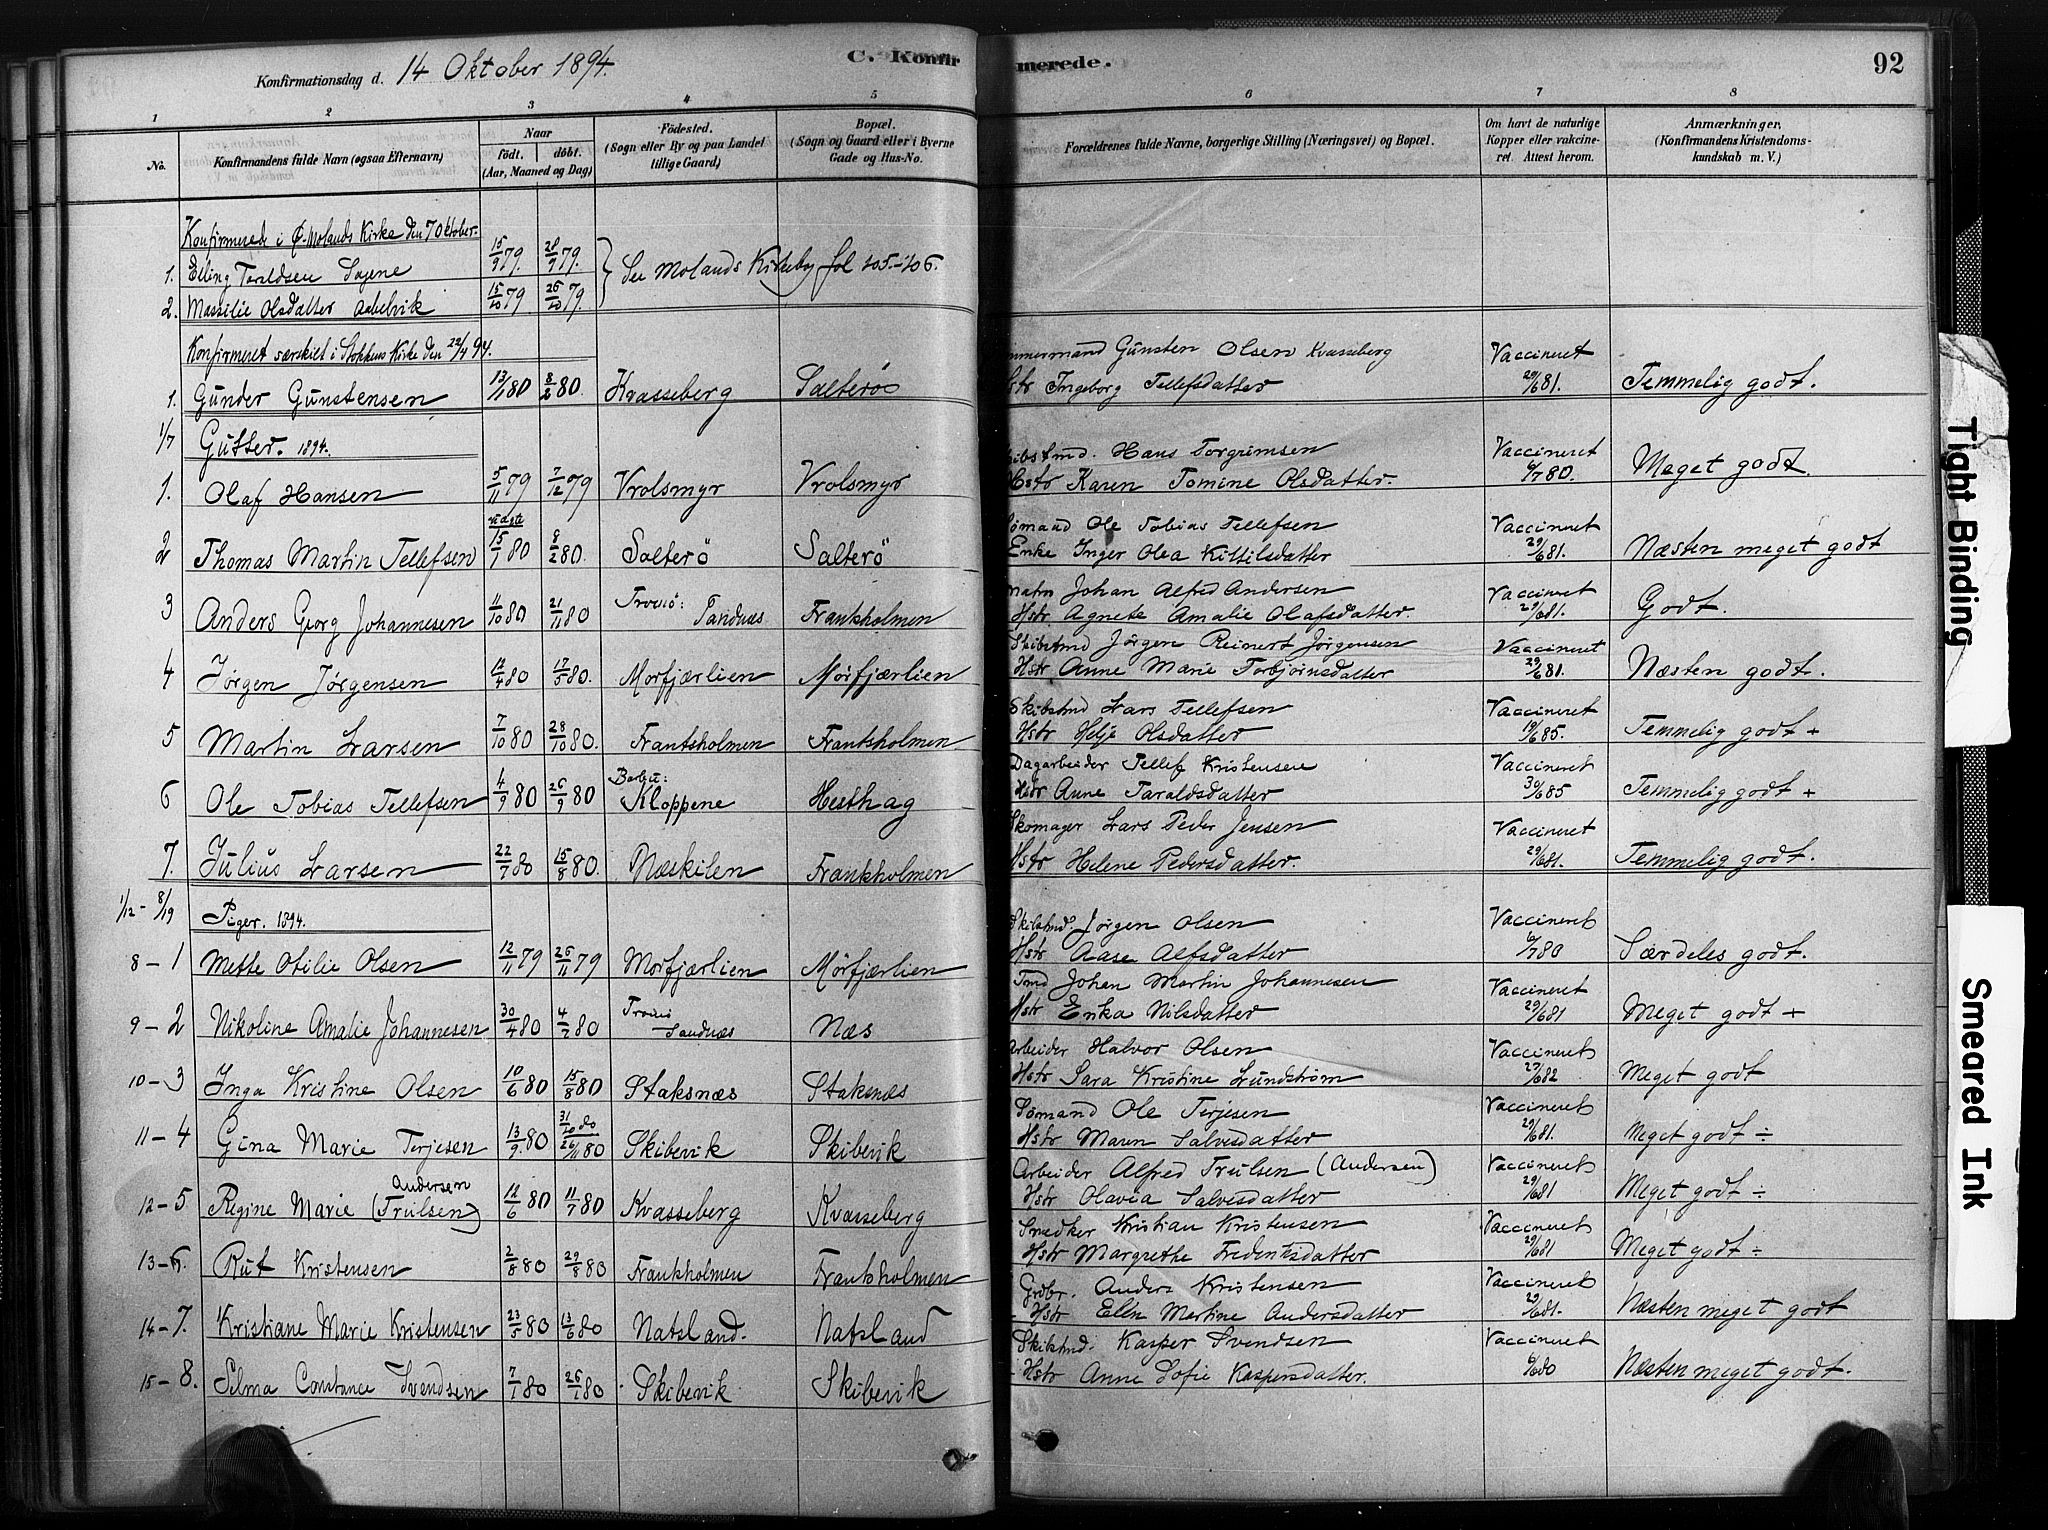 Konfirmationsdag d. 14 Oktober 1894.
C. Konfir merede.
92
1 2 3 4 5 6 7 8
No.
Konfirmandens fulde Navn (ogsaa Efternavn)
Naar
født. døbt.
(Aar, Maaned og Dag)
Fødested.
(Sogn eller By og paa Landet
tillige Gaard)
Bopæl.
(Sogn og Gaard eller i Byerne
Gade og Hus-No.
Forældrenes fulde Navne, borgerlige Stilling (Næringsvei) og Bopæl.
Om havt de naturlige
Kopper eller vakcine-
ret. Attest herom.
Anmærkninger.
(Konfirmandens Kristendoms-
kundskab m. V.)
Konfirmerede i Ø-Molands Kirke den 7 Oktober.
1. Elling Taraldsen 15/9 79. 28/9 79.
See Molands Kirkebog fol 105-106.
2. Massilie Olsdatter 15/10 79 26/10 79.
Konfirmeret særskilt i Stokkens Kirke den 22/4 94.
1. Gunder Gunstensen 13/1 80 8/2 80. Kvasseberg Salterø
mmermand Gunsten Olsen Kvasseberg Vaccineret
Hstr Ingeborg Tellefsdatter 29/6 81. Temmelig godt.
1/7 Gutter. 1894.
1. Olaf Hansen 5/11 79 7/12 79 Vrolsmyr Vrolsmyr
Skibstmd. Hans Torgrimsen Vaccineret
Hstr Karen Tomine Olsdatter. 6/7 80. Meget godt
2 Thomas Martin Tellefsen 15/1 80 8/2 80. Salterö Salterö
Sømand Ole Tobias Tellefsen Vaccineret
Enke Inger Olea Kittilsdatter 29/6 81. Næsten meget godt
3 Anders Georg Johannesen 11/10 80 21/11 80 Tromø: Sandnæs Frankholmen
Matros Johan Alfred Andersen Vaccineret
Hstr Agnete Amalie Olafsdatter. 29/6 81. Godt.
4 Jørgen Jørgensen 12/4 80 17/5 80. Morfjærlien Mørfjærlien
Skibstmd Jørgen Reinert Jørgensen Vaccineret
Hstr Anne Marie Torbjørnsdatter 29/6 81. Næsten godt.
5 Martin Larsen 7/10 80 28/10 80. Frantsholmen Frantsholmen
Skibstmd Lars Tellefsen Vaccineret
Hstr Helje Olsdatter 19/6 85. Temmelig godt +
6 Ole Tobias Tellefsen 4/9 80 26/9 80 Barbu: Kloppene Hesthag
Dagarbeider Tellef Kristensen Vaccineret
Hstr Anne Taraldsdatter 30/6 85 Temmelig godt +
7. Julius Larsen 22/7 80 15/8 80. Næskilen Frankholmen
Skomager Lars Peder Jensen Vaccineret
Hstr Helene Pedersdatter. 29/6 81. Temmelig godt.
1/12 - 8/19 Piger. 1894.
8 - 1 Mette Otilie Olsen 12/11 79 26/11 79 Morfjærlien Mørfjærlien
Skibstmd. Jørgen Olsen Vaccineret
Hstr Aase Alfsdatter 6/7 80 Særdeles godt.
9 - 2 Nikoline Amalie Johannesen 30/4 80 4/7 80 Tromø Sandnæs Næs
Tmd Johan Martin Johannesen Vaccineret
Hstr Erika Nilsdatter 29/6 81 Meget godt +
10 - 3 Inga Kristine Olsen 10/6 80 15/8 80 Staksnæs Staksnæs
Arbeider Halvor Olsen Vaccineret
Hstr Sara Kristine Lundstrøm 27/6 82 Meget godt
11 - 4 Gina Marie Terjesen 13/9 80 31/10 80 26/11 80 Skibevik Skibevik
Sømand Ole Terjesen Vaccineret
Hstr Maren Salvesdatter 29/6 81. Meget godt ÷
12 - 5 Regine Marie (Trulsen) Andersen 12/6 80 11/7 80 Kvasseberg Kvasseberg
Arbeider Alfred Trulsen (Andersen) Vaccineret
Hstr Olavia Salvesdatter 29/6 81 Meget godt ÷
13 - 6. Rut Kristensen 2/8 80 29/8 80 Frankholmen Franksholmen
Snedker Kristian Kristensen Vaccineret
Hstr Margrethe Frederiksdatter 29/6 81 Meget godt ÷
14 - 7. Kristiane Marie Kristensen 23/5 80 13/6 80 Natsland. Natsland
Grdbr. Anders Kristensen Vaccineret
Hstr Ellen Martine Andersdatter 29/6 81. Næsten meget godt
15 - 8. Selma Constance Svendsen 7/1 80 26/1 80 Skibevik Skibevik
Skibstmd. Kasper Svendsen Vaccineret
Hstr Anne Sofie Kaspersdatter. Næsten meget godt.
Tight Binding
Smeared Ink